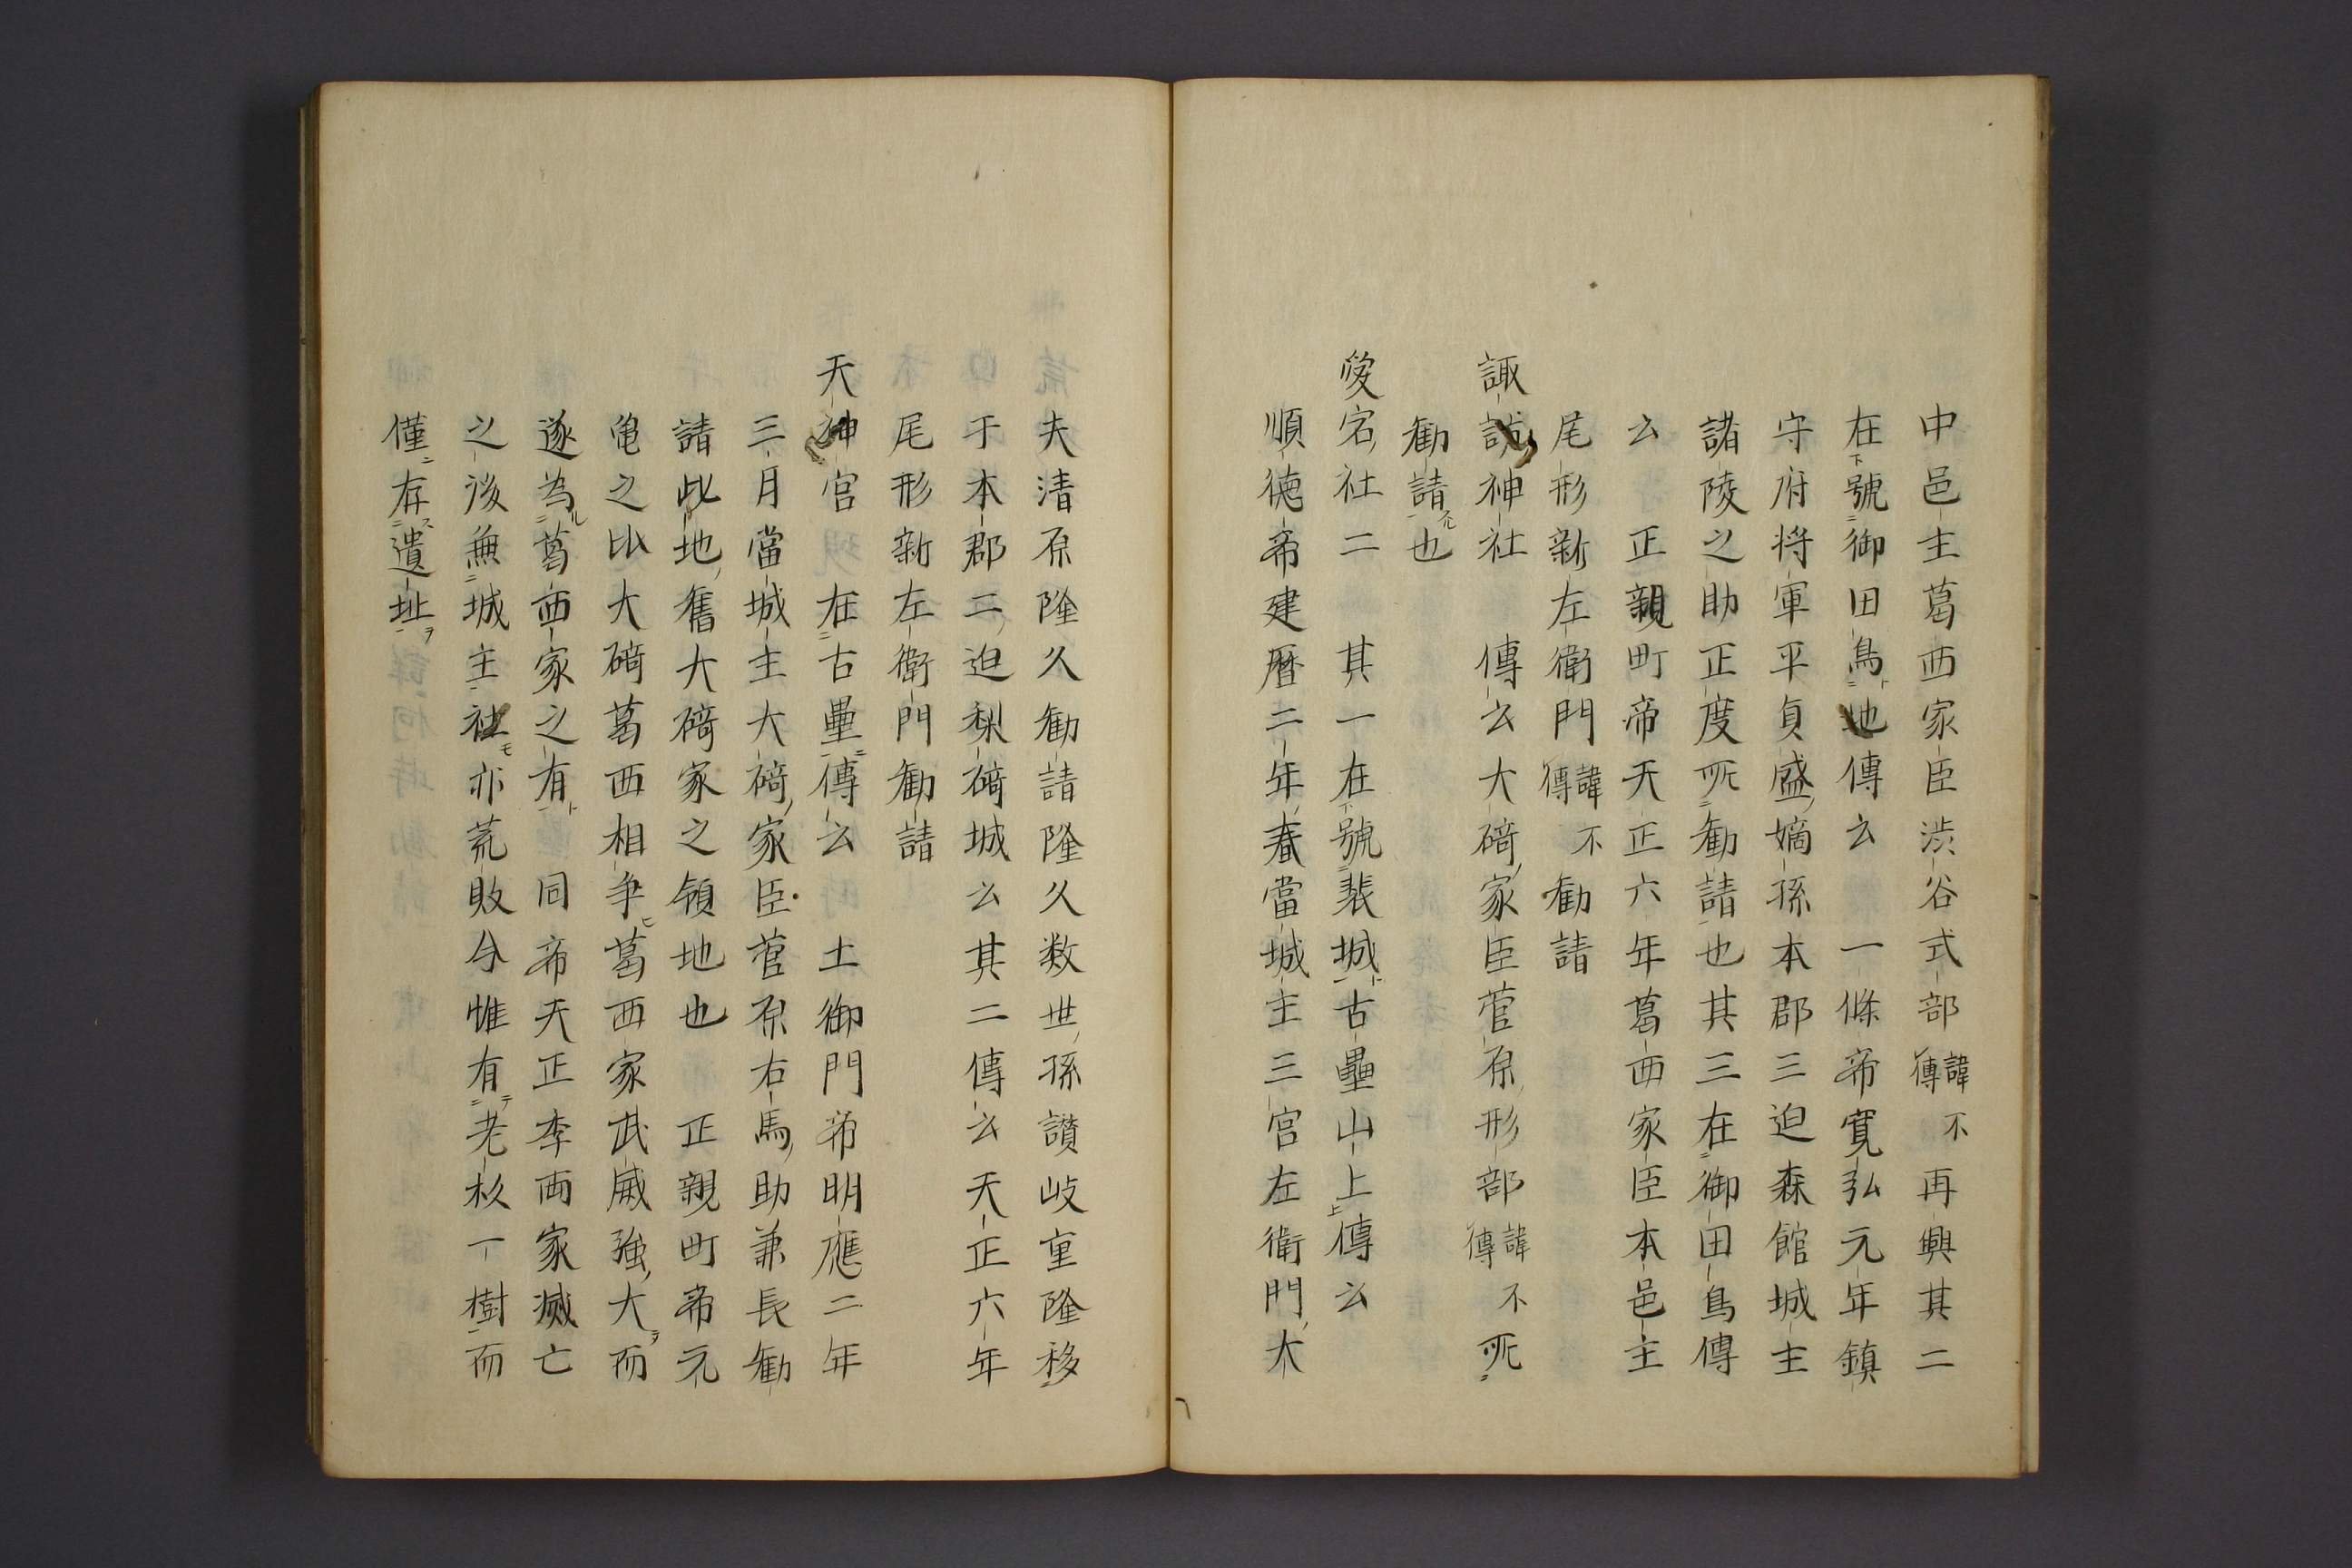 中邑主葛西家臣渋谷式部諱不傳再興其二
在下號ニ御田鳥ト地傳云　一條帝寛弘元年鎮
守府将軍平貞盛嫡孫本郡三迫森館城主
諸陵之助正度所ニ勧請也其三在ニ御田鳥傳
云　正親町帝天正六年葛西家臣本邑主
尾形新左衛門諱不傳勧請
諏訪神社　傳云大﨑家臣菅原形部諱不傳所ニ
勧請スル也
愛宕社二　其一在下號ニ裴城ト古壘山上上傳云
順徳帝建暦二年春當城主三宮左衛門大
夫清原隆久勧請隆久数世孫讃岐重隆移ニ
于本郡二迫梨﨑城云其二傳云天正六年
尾形新左衛門勧請
天神宮　在ニ古壘ニ傳云　土御門帝明應二年
三月當城主大﨑家臣菅原右馬助兼長勧
請此地舊大﨑家之領地也　正親町帝元
亀之比大﨑葛西相争ヒ葛西家武威強大ヲ而
遂為ル葛西家之有ト　同帝天正季両家滅亡
之後無ニ城主社モ亦荒敗今惟有テ老杉一樹而
僅ニ存ス遺址ヲ